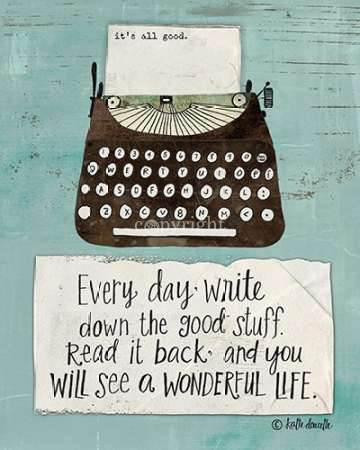 it's all good.
1 2 3 4 5 6 7 8 9 0
Q W E R T Y U I O P
A S D F G H J C L :
Z X C V B N M
copyright
Every day, write
down the good stuff.
Read it back, and you
WILL see a WONDERFUL LIFE.
© kath donath